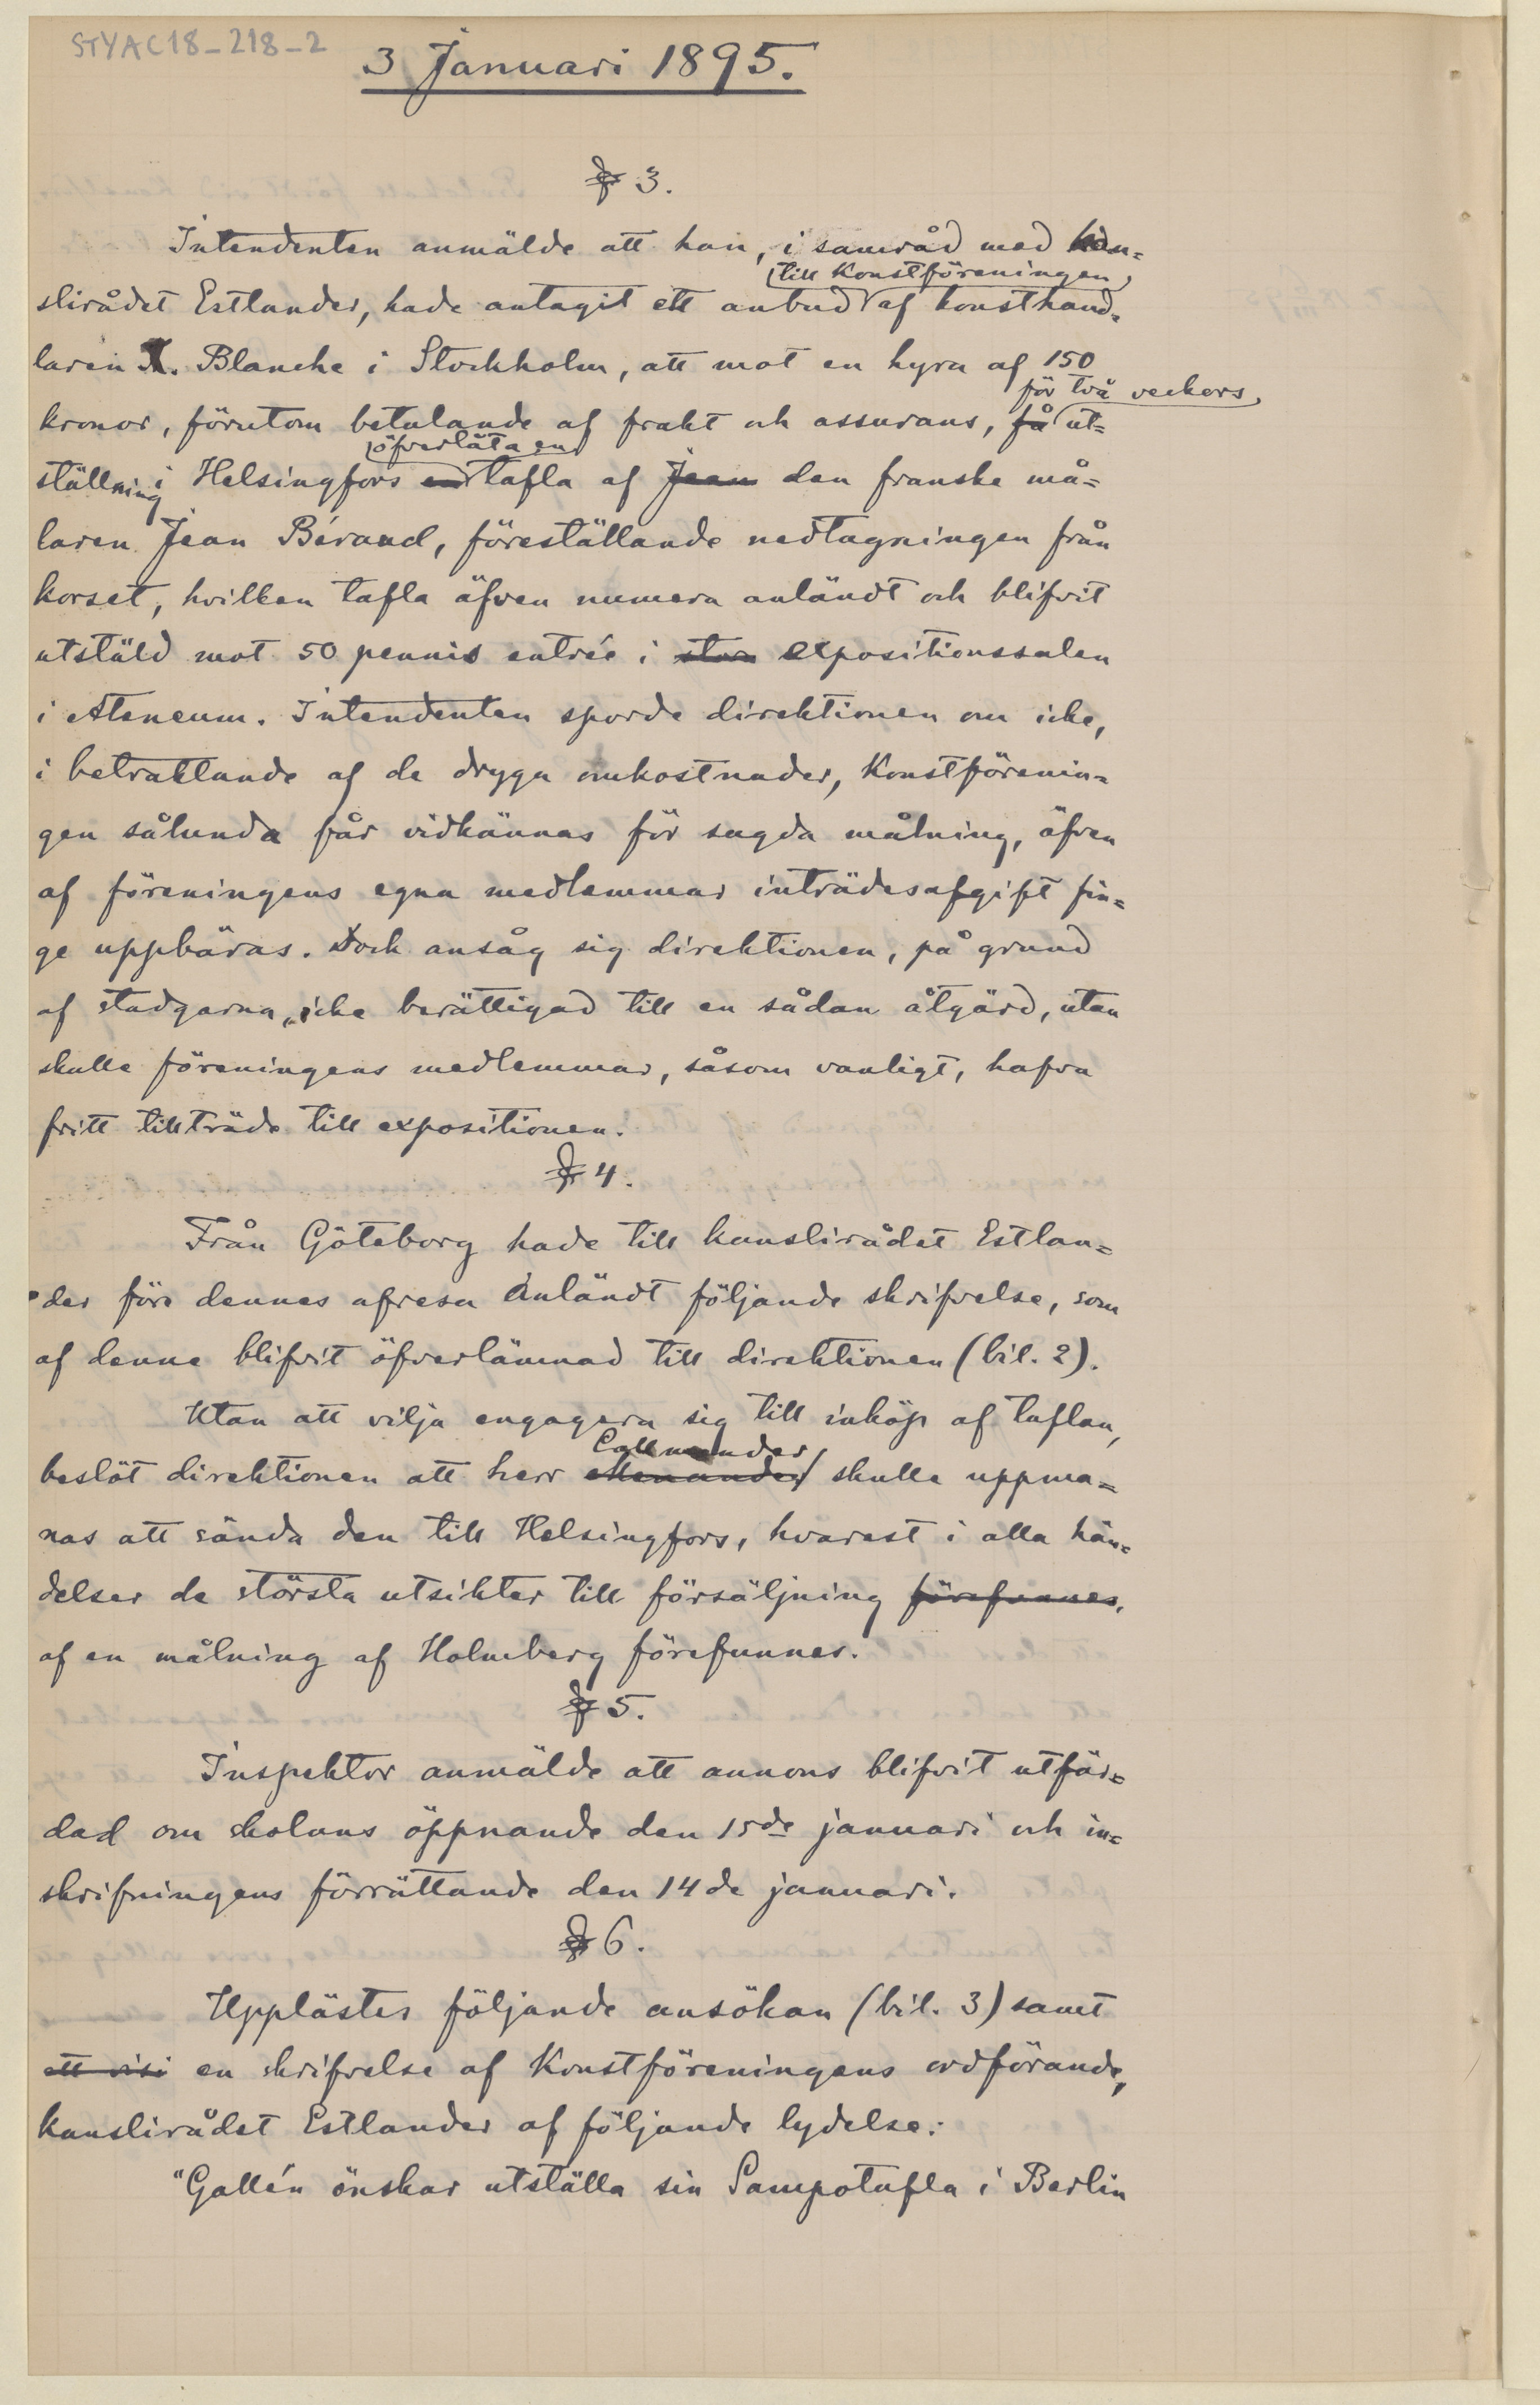 STYAC18-218-2
3 Januari 1895.
§ 3.
Intendenten anmälde att han, i samråd med kan=
till Konstföreningen
slirådet Estlander, hade antagit ett anbud af konsthand=
laren T. Blanche i Stockholm, att mot en hyra af 150
för två veckors
kronor, förutom betalande af frakt och assurans, få ut=
öfverlåta en
ställning i Helsingfors en tafla af Jean den franske må=
laren Jean Béraud, föreställande nedtagningen från
korset, hvilken tafla äfven numera anländt och blifvit
utstäld mot 50 pennis entrée i stora expositionssalen
i Ateneum. Intendenten sporde direktionen om icke,
i betraktande af de dryga omkostnader, Konstförenin=
gen sålunda får vidkännas för sagda målning, äfven
af föreningens egna medlemmar inträdesafgift fin=
ge uppbäras. Dock ansåg sig direktionen, på grund
af stadgarna, icke berättigad till en sådan åtgärd, utan
skulle föreningens medlemmar, såsom vanligt, hafva
fritt tillträde till expositionen.
§ 4.
Från Göteborg hade till kanslirådet Estlan=
der före dennes afresa anländt följande skrifvelse, som
af denne blifvit öfverlämnad till direktionen (bil. 2).
Utan att vilja engagera sig till inköp af taflan,
Callmander
beslöt direktionen att herr skulle uppma=
nas att sända den till Helsingfors, hvarest i alla hän=
delser de största utsikter till försäljning förefunnes,
af en målning af Holmberg förefunnes.
§ 5.
Inspektor anmälde att annons blifvit utfär=
dad om skolans öppnande den 15de januari och in=
skrifningens förrättande den 14de januari.
§ 6.
Upplästes följande ansökan (bil. 3) samt
ett visi en skrifvelse af Konstföreningens ordförande,
kanslirådet Estlander af följande lydelse:
"Gallén önskar utställa sin Sampotafla i Berlin